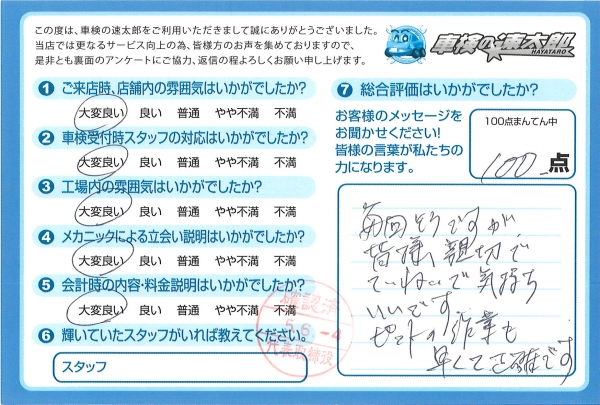 この度は、車検の速太郎をご利用いただきまして誠にありがとうございました。
当店では更なるサービス向上の為、皆様方のお声を集めておりますので、
是非とも裏面のアンケートにご協力、返信の程よろしくお願い申し上げます。
車検の速太郎
HAYATARO
1 ご来店時、店舗内の雰囲気はいかがでしたか?
大変良い 良い 普通 やや不満 不満
2 車検受付時スタッフの対応はいかがでしたか?
大変良い 良い 普通 やや不満 不満
3 工場内の雰囲気はいかがでしたか?
大変良い 良い 普通 やや不満 不満
4 メカニックによる立会い説明はいかがでしたか?
大変良い 良い 普通 やや不満 不満
5 会計時の内容・料金説明はいかがでしたか?
大変良い 良い 普通 やや不満 不満
6 輝いていたスタッフがいれば教えてください。
スタッフ
確認済
5.6.-4
代表取締役
7 総合評価はいかがでしたか?
お客様のメッセージを
お聞かせください!
皆様の言葉が私たちの
力になります。
100点まんてん中
100 点
毎回そうですが、
皆様、親切で
ていねいで気持ち
いいです
ピットの作業も
早くて正確です